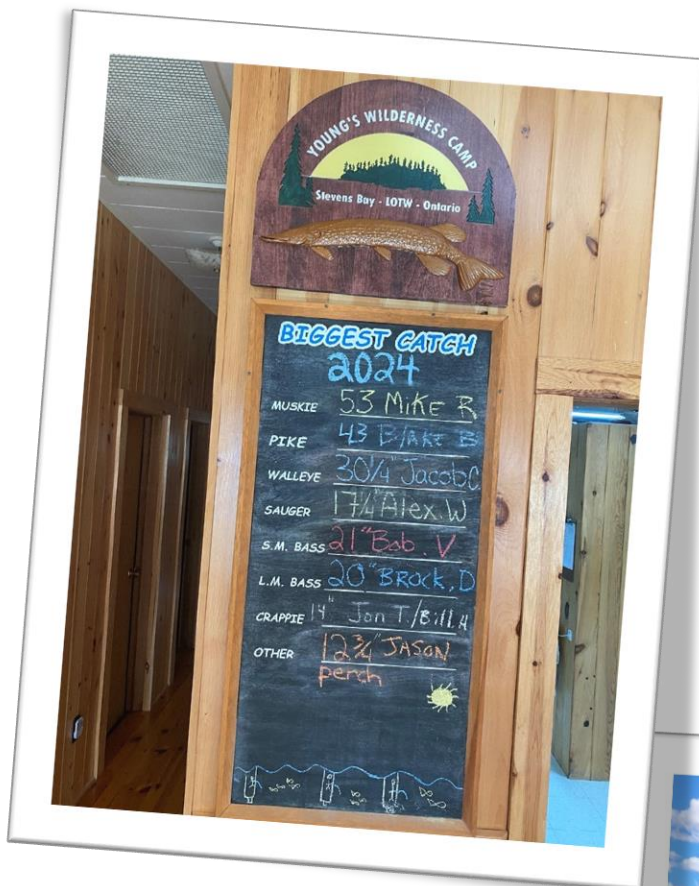 YOUNG'S WILDERNESS CAMP
Stevens Bay - LOTW - Ontario
BIGGEST CATCH
2024
MUSKIE 53 MIKE R
PIKE 43 BlAKE B
WALLEYE 30 1/4" Jacob C.
SAUGER 17 1/4" Alex. W
S.M. BASS 21" Bob. V
L.M. BASS 20" BROCK, D
CRAPPIE 14" Jon T./Bill.H
OTHER 12 3/4" JASON
perch